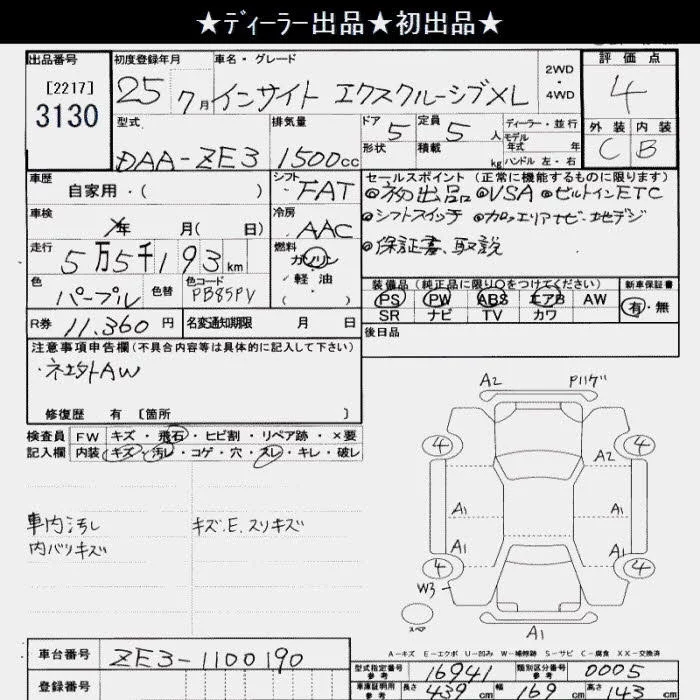 ★ディーラー出品★初出品★
出品番号 初度登録年月 車名・グレード 評価点
[2217] 3130 25 7月 インサイト エクスクルーシブXL 2WD・4WD 4
型式 排気量 ドア 5 定員 5人 ディーラー・並行 外装 内装
DAA-ZE3 1500cc 形状 積載 kg モデル年式 年 ハンドル 左・右 C B
車歴 シフト セールスポイント (正常に機能するものに限ります)
自家用・( ) FAT ◎初出品 ◎VSA ◎ビルトインETC
車検 年 月( 日) 冷房 AAC ◎シフトスイッチ
走行 5万5千193km 燃料 ガソリン・軽油・( ) ◎保証書、取説
色 色替 色コード 装備品 (純正品に限り○をつけてください) 新車保証書
パープル PB85PV PS PW ABS エアB AW 有・無
R券 11.360円 名変通知期限 月 日 SR ナビ TV カワ
注意事項申告欄(不具合内容等は具体的に記入して下さい) 後日品
修復歴 有 [箇所 ]
検査員 FW キズ・飛石・ヒビ割・リペア跡・×要
記入欄 内装 キズ・汚レ・コゲ・穴・スレ・キレ・破レ
A2
4 4
A2
A1 A1
車内汚レ キズ.E.スリキズ
内バリキズ
A1 A1
4 4
W3
スペア
A1
A-キズ E-エクボ U-凹み W-補修跡 S-サビ C-腐食 XX-交換済
車台番号 ZE3-1100190
型式指定番号 参考 16941 類別区分番号 参考 0005
登録番号 車庫証明用 参考 長さ 439cm 幅 169cm 高さ 143cm